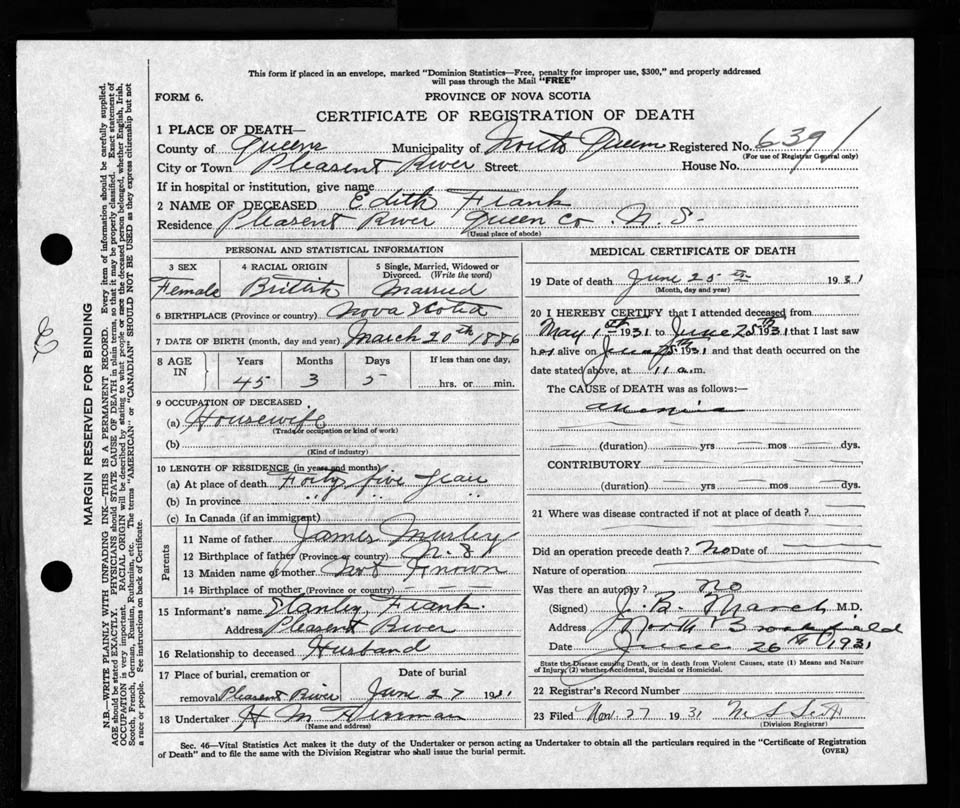 This form if placed in an envelope, marked "Dominion Statistics—Free, penalty for improper use, $300," and properly addressed
will pass through the Mail "FREE"
FORM 6.
PROVINCE OF NOVA SCOTIA
CERTIFICATE OF REGISTRATION OF DEATH
1 PLACE OF DEATH—
County of Queens Municipality of North Queen Registered No. 6391
(For use of Registrar General only)
City or Town Pleasent River Street House No.
If in hospital or institution, give name
2 NAME OF DECEASED Edith Frank
Residence Pleasent River Queen Co. N.S.
(Usual place of abode)
PERSONAL AND STATISTICAL INFORMATION
3 SEX Female
4 RACIAL ORIGIN British
5 Single, Married, Widowed or Divorced. (Write the word) Married
6 BIRTHPLACE (Province or country) Nova Scotia
7 DATE OF BIRTH (month, day and year) March 20th 1886
8 AGE IN
Years Months Days If less than one day,
45 3 5 hrs. or min.
9 OCCUPATION OF DECEASED
(a) Housewife
(Trade or occupation or kind of work)
(b)
(Kind of industry)
10 LENGTH OF RESIDENCE (in years and months)
(a) At place of death Forty five Year
(b) In province " " "
(c) In Canada (if an immigrant)
Parents
11 Name of father James
12 Birthplace of father (Province or country) N.S
13 Maiden name of mother Not Known
14 Birthplace of mother (Province or country)
15 Informant's name Stanley Frank.
Address Pleasent River
16 Relationship to deceased Husband
17 Place of burial, cremation or Date of burial
removal Pleasent River June 27 1931
18 Undertaker H M
(Name and address)
MEDICAL CERTIFICATE OF DEATH
19 Date of death June 25th 1931
(Month, day and year)
20 I HEREBY CERTIFY that I attended deceased from
May 1st 1931 to June 25th 1931 that I last saw
her alive on June 1931 and that death occurred on the
date stated above, at 11 a.m.
The CAUSE of DEATH was as follows:—
(duration) yrs mos dys.
CONTRIBUTORY
(duration) yrs mos dys.
21 Where was disease contracted if not at place of death?
Did an operation precede death? No Date of
Nature of operation
Was there an autopsy? No
(Signed) J. B. March M.D.
Address North Brookfield
Date June 26th 1931
State the Disease causing Death, or in death from Violent Causes, state (1) Means and Nature
of Injury, (2) whether Accidental, Suicidal or Homicidal.
22 Registrar's Record Number
23 Filed Nov. 27 1931
(Division Registrar)
Sec. 46—Vital Statistics Act makes it the duty of the Undertaker or person acting as Undertaker to obtain all the particulars required in the "Certificate of Registration
of Death" and to file the same with the Division Registrar who shall issue the burial permit.
(OVER)
MARGIN RESERVED FOR BINDING
N.B.—WRITE PLAINLY WITH UNFADING INK—THIS IS A PERMANENT RECORD. Every item of information should be carefully supplied.
AGE should be stated EXACTLY. PHYSICIANS should STATE CAUSE OF DEATH in plain terms, so that it may be properly classified. Exact statement of
OCCUPATION is very important. RACIAL ORIGIN will be described by stating to what people or race the deceased person belonged, whether English, Irish,
Scotch, French, German, Russian, Ruthenian, etc. The terms "AMERICAN" or "CANADIAN" SHOULD NOT BE USED as they express citizenship but not
a race or people. See instructions on back of Certificate.